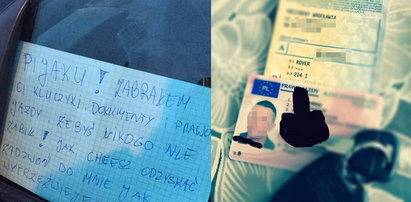 PIJAKU! ZABRAŁEM
CI KLUCZYKI DOKUMENTY I PRAWO
JAZDY ŻEBYŚ NIKOGO NIE
ZABIŁ! JAK CHCESZ ODZYSKAĆ
ZADZWOŃ DO MNIE JAK
WYTRZEŹWIEJESZ
PREZYDENT WROCŁAWIA
A
ROVER
214 I
PL
PRAWO JAZDY